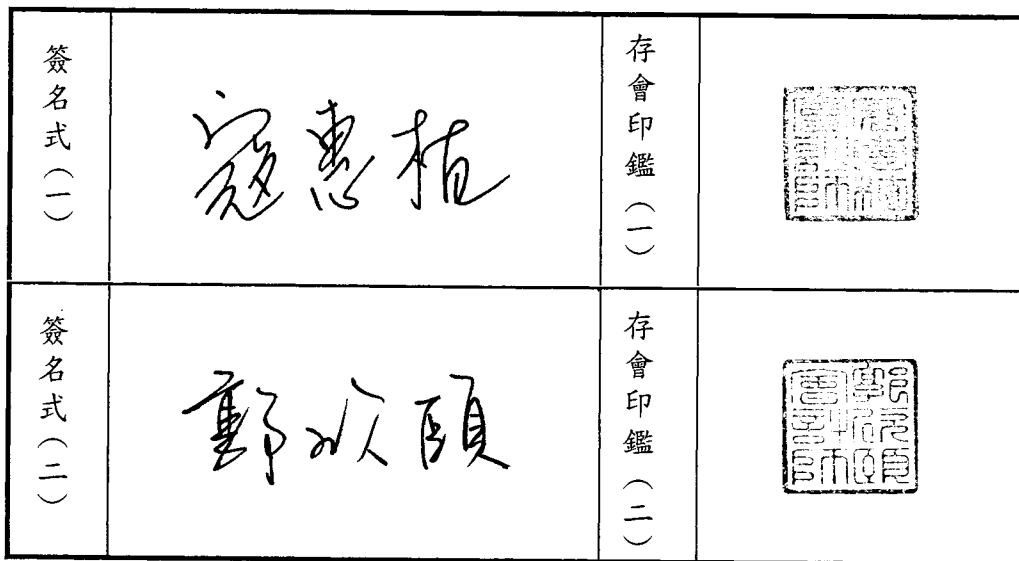 簽名式（一）
寇惠植
存會印鑑（一）
簽名式（二）
郭欣頤
存會印鑑（二）